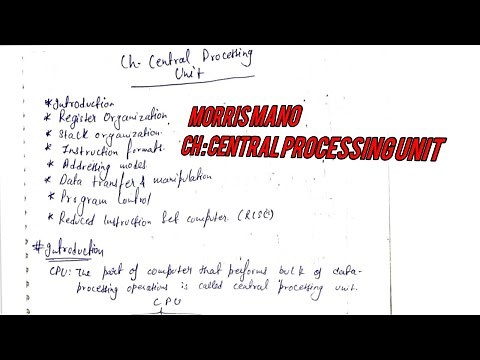 Ch- Central Processing
Unit
* Introduction
* Register Organization
* Stack organization
* Instruction formats
* Addressing modes
* Data transfer & manipulation
* Program Control
* Reduced Instruction Set computer (RISC)
MORRIS MANO
CH: CENTRAL PROCESSING UNIT
# Introduction
CPU: The part of computer that performs bulk of data-
processing operations is called central processing unit.
CPU